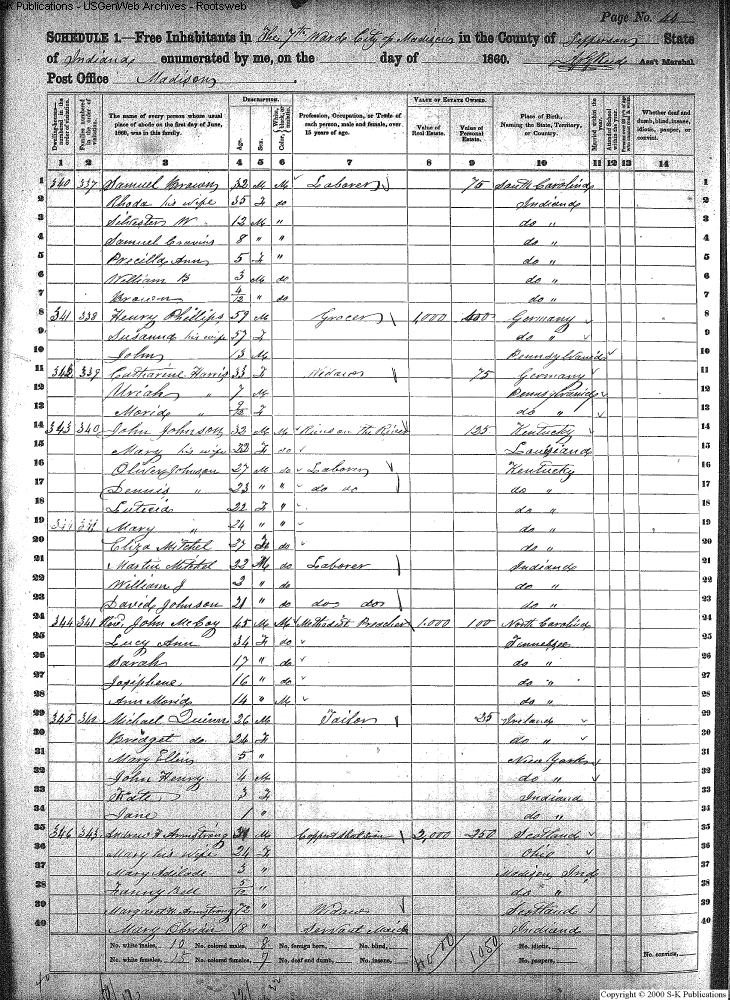 S-K Publications - USGenWeb Archives - Rootsweb
Page No. 44
SCHEDULE 1.—Free Inhabitants in The 7th Ward City of Madison in the County of Jefferson State
of Indiana enumerated by me, on the day of 1860. Ass't Marshal
Post Office Madison.
DESCRIPTION. VALUE OF ESTATE OWNED.
Dwelling-houses—numbered in the order of visitation. Families numbered in the order of visitation. The name of every person whose usual place of abode on the first day of June, 1860, was in this family. Age. Sex. Color, {White, black, or mulatto. Profession, Occupation, or Trade of each person, male and female, over 15 years of age. Value of Real Estate. Value of Personal Estate. Place of Birth, Naming the State, Territory, or Country. Married within the year. Whether deaf and dumb, blind, insane, idiotic, pauper, or convict.
1 2 3 4 5 6 7 8 9 10 11 12 13 14
1 340 337 Samuel Brown 32 M M Laborer 75 South Carolina 1
2 Rhoda his wife 35 F do Indiana 2
3 Silvester W 12 M " do " 3
4 Samuel Cravins 8 " " do " 4
5 Precilla Ann 5 F " do " 5
6 William B 3 M do do " 6
7 Brown 4/12 " do do " 7
8 341 338 Henry Phillips 59 M Grocer 1,000 Germany 8
9 Susanna his wife 57 F do " 9
10 John 13 M Pennsylvania 10
11 342 339 Catharine Harris 33 F Widow 75 Germany 11
12 Uriah " 7 M Pennsylvania 12
13 " 9/12 F do " 13
14 343 340 John Johnson 32 M M Runs on the River 125 Kentucky 14
15 Mary his wife 22 F do Louisiana 15
16 Oliver Johnson 27 M do Laborer Kentucky 16
17 Dennis " 23 " " do do do " 17
18 Luticia 22 F " do " 18
19 Mary " 24 " " do " 19
20 Eliza Mitchel 27 F do do " 20
21 Martin Mitchel 22 M do Laborer Indiana 21
22 William J 3 " do do " 22
23 David Johnson 21 " do do do do " 23
24 344 341 Rev. John McCoy 45 M M Methodist Preacher 1.000 100 North Carolina 24
25 Lucy Ann 34 F do Tennessee 25
26 Sarah 17 " do do " 26
27 Josiphene 16 " do do " 27
28 Ann 14 " M do " 28
29 345 342 Michael Quinn 26 M Tailor 25 Ireland 29
30 Bridget do 24 F do " 30
31 Mary Ellen 5 " New York 31
32 John Henry 4 M do " 32
33 Kate 3 F Indiana 33
34 Jane 1 " do " 34
35 346 343 Andrew Armstrong 31 M 2,000 250 Scotland 35
36 Mary his wife 24 F Ohio 36
37 Mary 3 " Madison, Ind 37
38 Fanny Bell 5/12 " do " 38
39 Margaret Armstrong 72 " Widow Scotland 39
40 Mary 18 " Servant Maid Indiana 40
No. white males, 10 No. colored males, 8 No. foreign born, No. blind, 1050 No. idiotic,
No. white females, No. colored females, 7 No. deaf and dumb, No. insane, No. paupers, No. convicts,
Copyright © 2000 S-K Publications